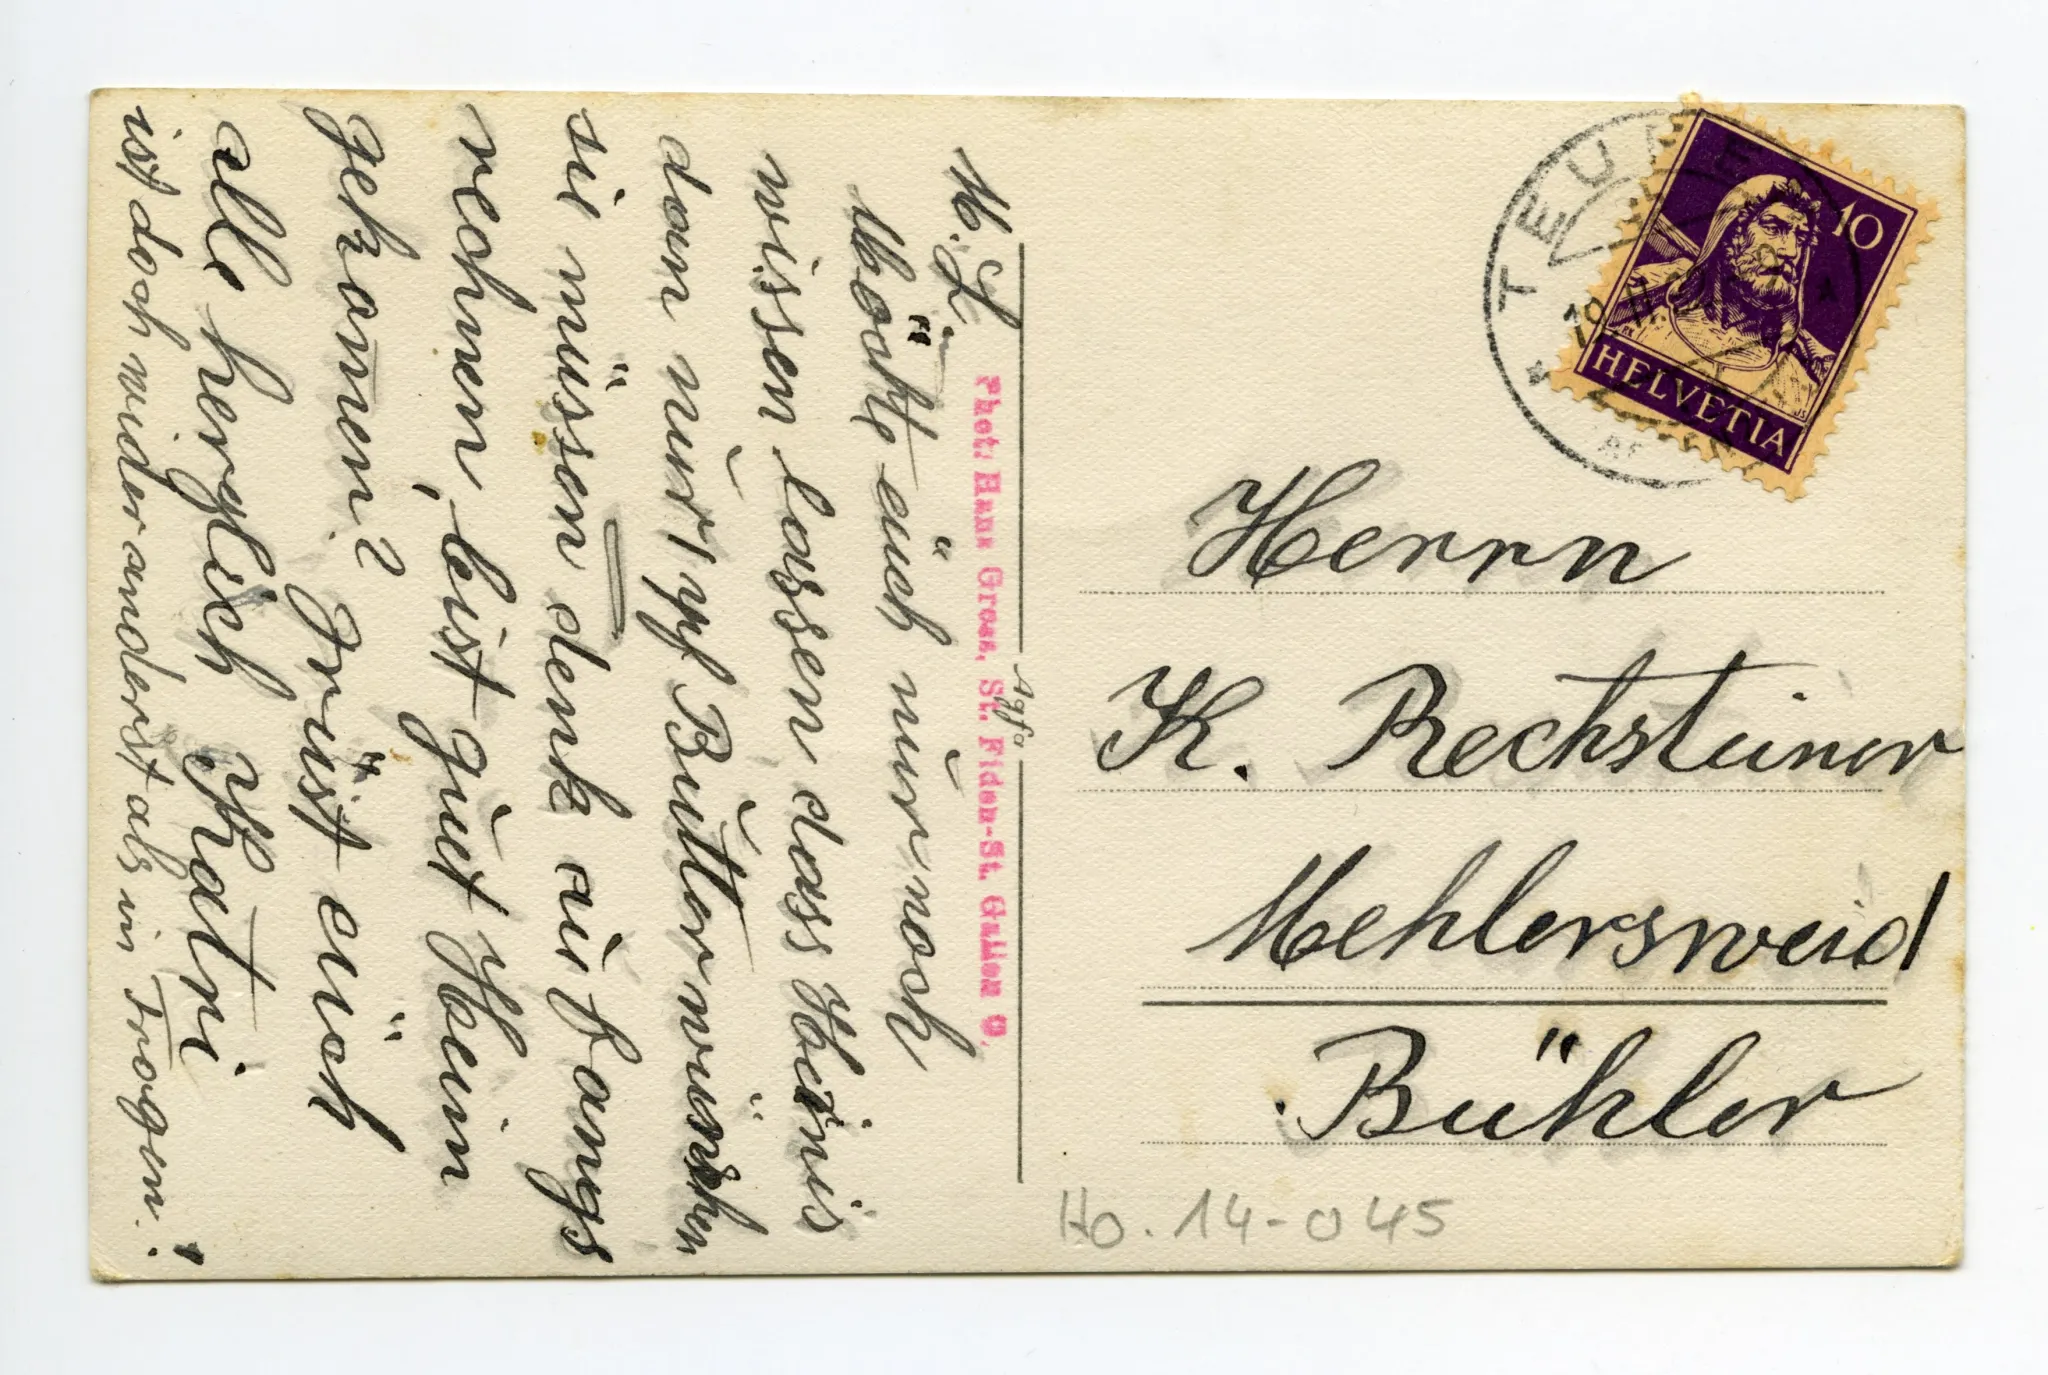 M. L.
Möchte euch nur noch
wissen lassen dass Heinis
dann nur 1 Pf Butter wünschen
sie müssen denk anfangs
rechnen, bist guet Heim
gekommen? Grüst euch
alle herzlich Kätri
ist doch wider anderst als in Trogen.
Phot: Hans Gross, St. Fiden-St. Gallen O.
Agfa
TEUFEN
10
HELVETIA
Herrn
K. Rechsteiner
Mehlersweid
Bühler
Ho. 14-045